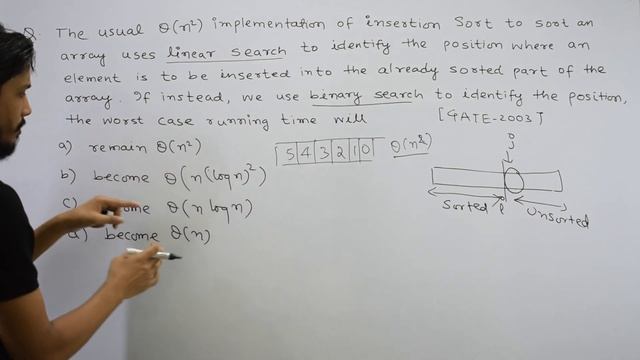 Q. The usual θ(n²) implementation of insertion Sort to sort an
array uses linear search to identify the position where an
element is to be inserted into the already sorted part of the
array. If instead, we use binary search to identify the position,
the worst case running time will [GATE-2003]
a) remain θ(n²)
b) become θ(n(logn)²)
c) θ(n logn)
d) become θ(n)
5 4 3 2 1 0 θ(n²)
Sorted Unsorted